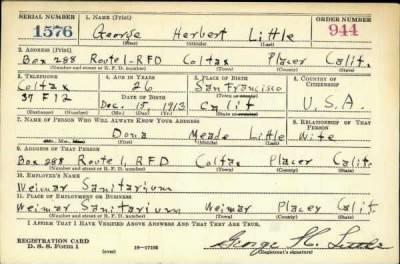 SERIAL NUMBER 1. NAME (Print) ORDER NUMBER
1576 George Herbert Little 944
(First) (Middle) (Last)
2. ADDRESS (Print)
Box 288 Route 1-RFD Colfax Placer Calif.
(Number and street or R. F. D. number) (Town) (County) (State)
3. TELEPHONE 4. AGE IN YEARS 5. PLACE OF BIRTH 6. COUNTRY OF CITIZENSHIP
Colfax 26 San Francisco
DATE OF BIRTH (Town or county)
37 F 12 Dec. 15, 1913 Calif U.S.A.
(Exchange) (Number) (Mo.) (Day) (Yr.) (State or country)
7. NAME OF PERSON WHO WILL ALWAYS KNOW YOUR ADDRESS 8. RELATIONSHIP OF THAT PERSON
Dona Meade Little Wife
(Mr., Mrs., Miss) (First) (Middle) (Last)
9. ADDRESS OF THAT PERSON
Box 288 Route 1, RFD Colfax Placer Calif.
(Number and street or R. F. D. number) (Town) (County) (State)
10. EMPLOYER'S NAME
Weimar Sanitarium
11. PLACE OF EMPLOYMENT OR BUSINESS
Weimar Sanitarium Weimar Placer Calif.
(Number and street or R. F. D. number) (Town) (County) (State)
I AFFIRM THAT I HAVE VERIFIED ABOVE ANSWERS AND THAT THEY ARE TRUE.
REGISTRATION CARD
D. S. S. Form 1 (over) George H. Little
(Registrant's signature)